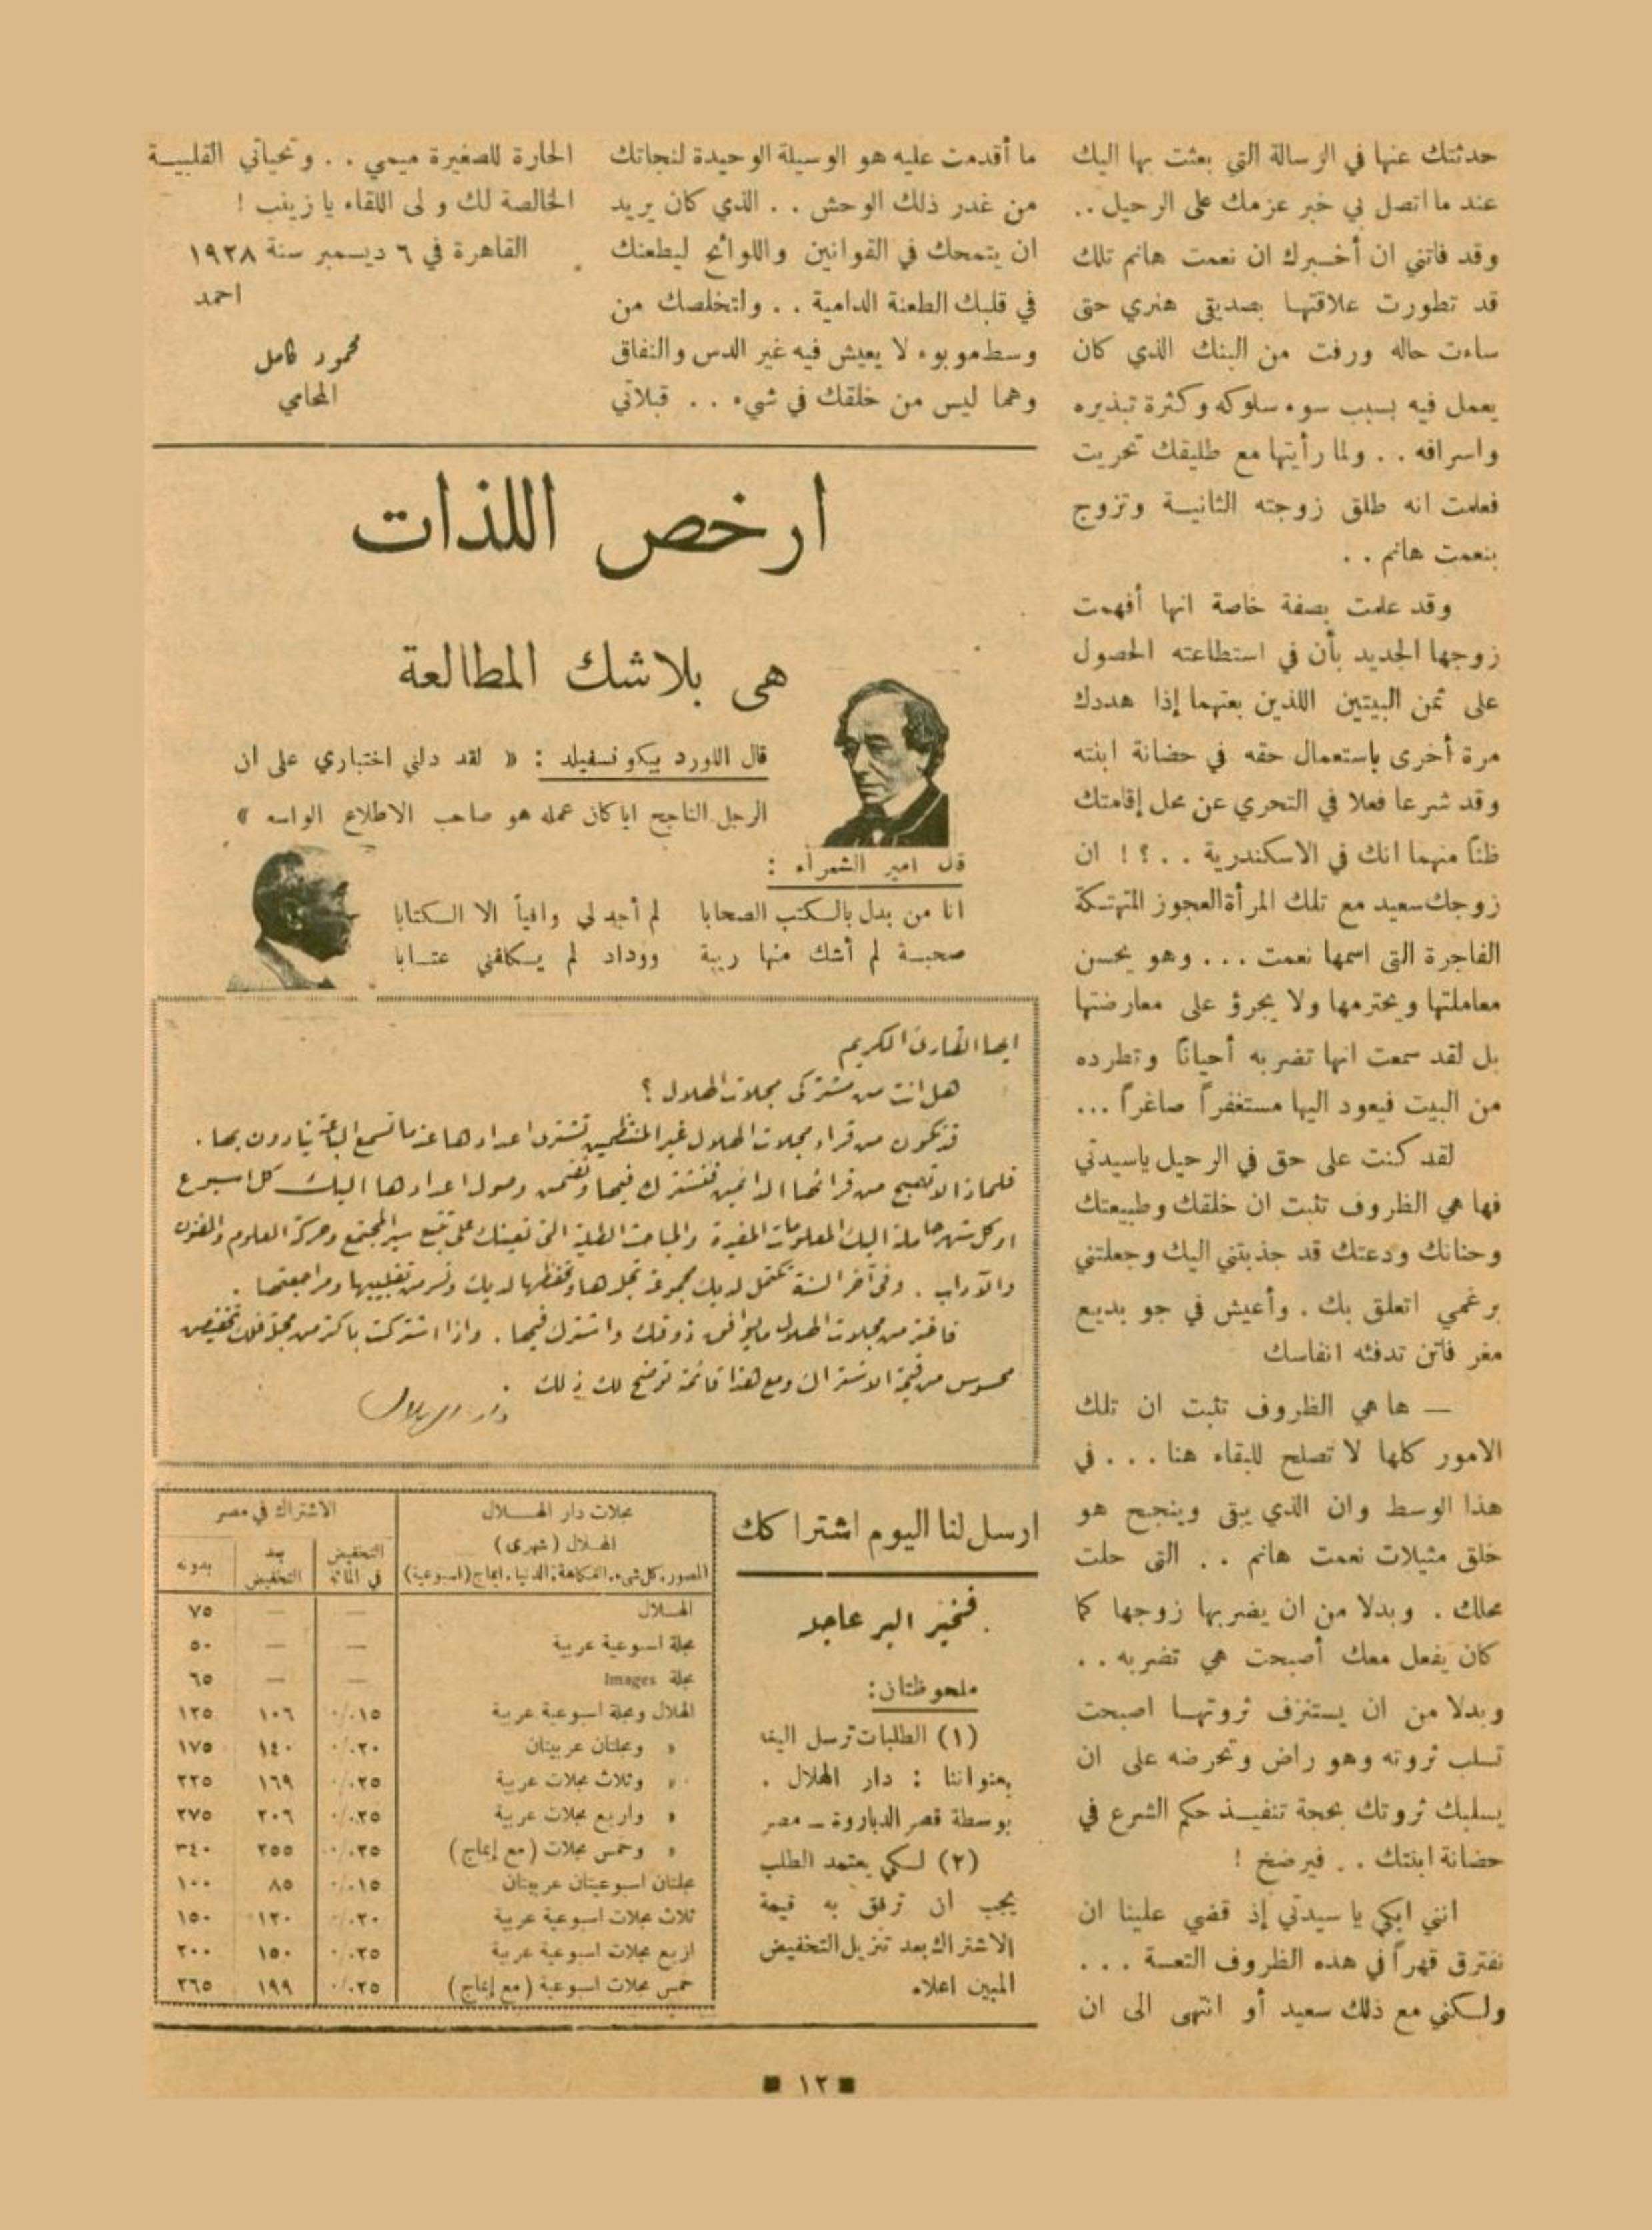 حدثتك عنها في الرسالة التي بعثت بها اليك
عند ما اتصل بي خبر عزمك على الرحيل . .
وقد فاتني ان أخبرك ان نعمت هانم تلك
قد تطورت علاقتها بصديقي هنري حتى
ساءت حاله ورفت من البنك الذي كان
يعمل فيه بسبب سوء سلوكه وكثرة تبذيره
واسرافه . . ولما رأيتها مع طليقك تحريت
فعلمت انه طلق زوجته الثانية وتزوج
بنعمت هانم . .
وقد علمت بصفة خاصة انها أفهمت
زوجها الجديد بأن في استطاعته الحصول
على ثمن البيتين اللذين بعتهما إذا هددك
مرة أخرى باستعمال حقه في حضانة ابنته
وقد شرعا فعلا في التحري عن محل إقامتك
ظناً منهما انك في الاسكندرية . . ؟ ! ان
زوجك سعيد مع تلك المرأة العجوز المتهتكة
الفاجرة التي اسمها نعمت . . . وهو يحسن
معاملتها ويحترمها ولا يجرؤ على معارضتها
بل لقد سمعت انها تضربه أحياناً وتطرده
من البيت فيعود اليها مستغفراً صاغراً . . .
لقد كنت على حق في الرحيل ياسيدتي
فها هي الظروف تثبت ان خلقك وطبيعتك
وحنانك ودعتك قد جذبتني اليك وجعلتني
برغمي اتعلق بك . وأعيش في جو بديع
مغر فاتن تدفئه انفاسك
— ها هي الظروف تثبت ان تلك
الامور كلها لا تصلح للبقاء هنا . . . في
هذا الوسط وان الذي يبقى وينجح هو
خلق مثيلات نعمت هانم . . التي حلت
محلك . وبدلا من ان يضربها زوجها كما
كان يفعل معك أصبحت هي تضربه . .
وبدلا من ان يستنزف ثروتها اصبحت
تسلب ثروته وهو راض وتحرضه على ان
يسلبك ثروتك بحجة تنفيذ حكم الشرع في
حضانة ابنتك . . فيرضخ !
انني ابكي يا سيدتي إذ قضي علينا ان
نفترق قهراً في هذه الظروف التعسة . . .
ولكني مع ذلك سعيد أو انتهى الى ان
ما أقدمت عليه هو الوسيلة الوحيدة لنجاتك
من غدر ذلك الوحش . . الذي كان يريد
ان يتمحك في القوانين واللوائح ليطعنك
في قلبك الطعنة الدامية . . ولتخلصك من
وسط موبوء لا يعيش فيه غير الدس والنفاق
وهما ليس من خلقك في شيء . . قبلاتي
الحارة للصغيرة ميمي . . وتحياتي القلبية
الخالصة لك و لى اللقاء يا زينب !
القاهرة في ٦ ديسمبر سنة ١٩٢٨
احمد
محمود كامل
المحامي
ارخص اللذات
هى بلاشك المطالعة
قال اللورد بيكونسفيلد : « لقد دلني اختباري على ان
الرجل الناجح ايا كان عمله هو صاحب الاطلاع الواسع »
قال امير الشعراء :
انا من بدل بالكتب الصحابا لم أجد لي وافياً الا الكتابا
صحبة لم أشك منها ريبة ووداد لم يكلفني عتابا
ايها القارئ الكريم
هل انت من مشتركى مجلات الهلال ؟
قد تكون من قراء مجلات الهلال غير المنتظمين تشترى اعدادها عندما تسمع الباعة ينادون بها .
فلماذا لا تصبح من قرائها الدائمين فتشترك فيها وتضمن وصول اعدادها اليك كل اسبوع
او كل شهر حاملة اليك المعلومات المفيدة والمباحث الطلية التى تعينك على تتبع سير المجتمع وحركة العلوم والفنون
والآداب . وفى آخر السنة تكتمل لديك مجموعة تجلدها وتحفظها لديك وتسر من تقليبها ومراجعتها .
فاختر من مجلات الهلال ما يوافق ذوقك واشترك فيها . واذا اشتركت باكثر من مجلة فلك تخفيض
محسوس من قيمة الاشتراك ومع هذا قائمة توضح لك ذلك .
دار الهلال
ارسل لنا اليوم اشتراكك
فخير البر عاجله
ملحوظتان:
(١) الطلبات ترسل الينا
بعنواننا : دار الهلال .
بوسطة قصر الدبارة ـ مصر
(٢) لكي يعتمد الطلب
يجب ان ترفق به قيمة
الاشتراك بعد تنزيل التخفيض
المبين اعلاه
مجلات دار الهلال الاشتراك في مصر
الهلال (شهرى)
المصور، كل شيء، الفكاهة، الدنيا، ايماج (اسبوعية) التخفيض في المائة بعد التخفيض بدونه
الهلال — — ٧٥
مجلة اسبوعية عربية — — ٥٠
مجلة Images — — ٦٥
الهلال ومجلة اسبوعية عربية ١٥٪ ١٠٦ ١٢٥
» ومجلتان عربيتان ٢٠٪ ١٤٠ ١٧٥
» وثلاث مجلات عربية ٢٥٪ ١٦٩ ٢٢٥
» واربع مجلات عربية ٢٥٪ ٢٠٦ ٢٧٥
» وخمس مجلات (مع إيماج) ٢٥٪ ٢٥٥ ٣٤٠
مجلتان اسبوعيتان عربيتان ١٥٪ ٨٥ ١٠٠
ثلاث مجلات اسبوعية عربية ٢٠٪ ١٢٠ ١٥٠
اربع مجلات اسبوعية عربية ٢٥٪ ١٥٠ ٢٠٠
خمس مجلات اسبوعية (مع إيماج) ٢٥٪ ١٩٩ ٢٦٥
١٢